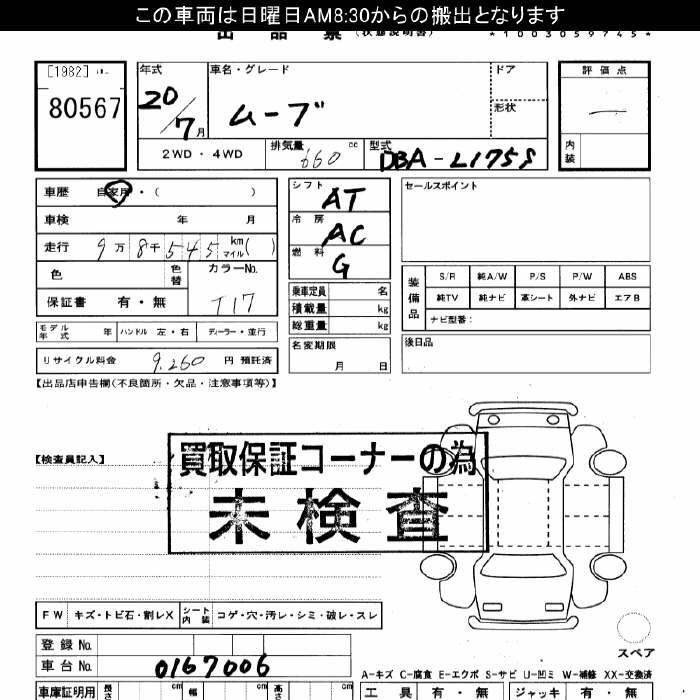 この車両は日曜日AM8:30からの搬出となります
出品票 (状態説明書) *1003059745*
[1982]
80567
年式 20/7月
車名・グレード ムーブ
ドア
形状
評価点
内装
2WD・4WD
排気量 660 cc
型式 DBA-L175S
車歴 自家用・( )
車検 年 月
走行 9万8千545 km マイル( )
色 色替 カラーNo. T17
保証書 有・無
モデル年式 年 ハンドル 左・右 ディーラー・並行
リサイクル料金 9,260 円 預託済
シフト AT
冷房 AC
燃料 G
乗車定員 名
積載量 kg
総重量 kg
名変期限
月 日
セールスポイント
装備品
S/R 純A/W P/S P/W ABS
純TV 純ナビ 革シート 外ナビ エアB
ナビ型番:
後日品
【出品店申告欄(不良箇所・欠品・注意事項等)】
【検査員記入】
買取保証コーナーの為
未検査
FW キズ・トビ石・割レX シート内装 コゲ・穴・汚レ・シミ・破レ・スレ
登録No.
車台No. 0167006
スペア
A-キズ C-腐食 E-エクボ S-サビ U-凹ミ W-補修 XX-交換済
車庫証明用 長さ cm 幅 cm 高さ cm
工具 有・無 ジャッキ 有・無